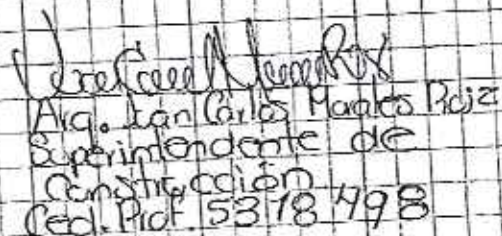 Arq. Juan Carlos Ruiz
Superintendente de
Construcción
Ced. Prof. 5378498